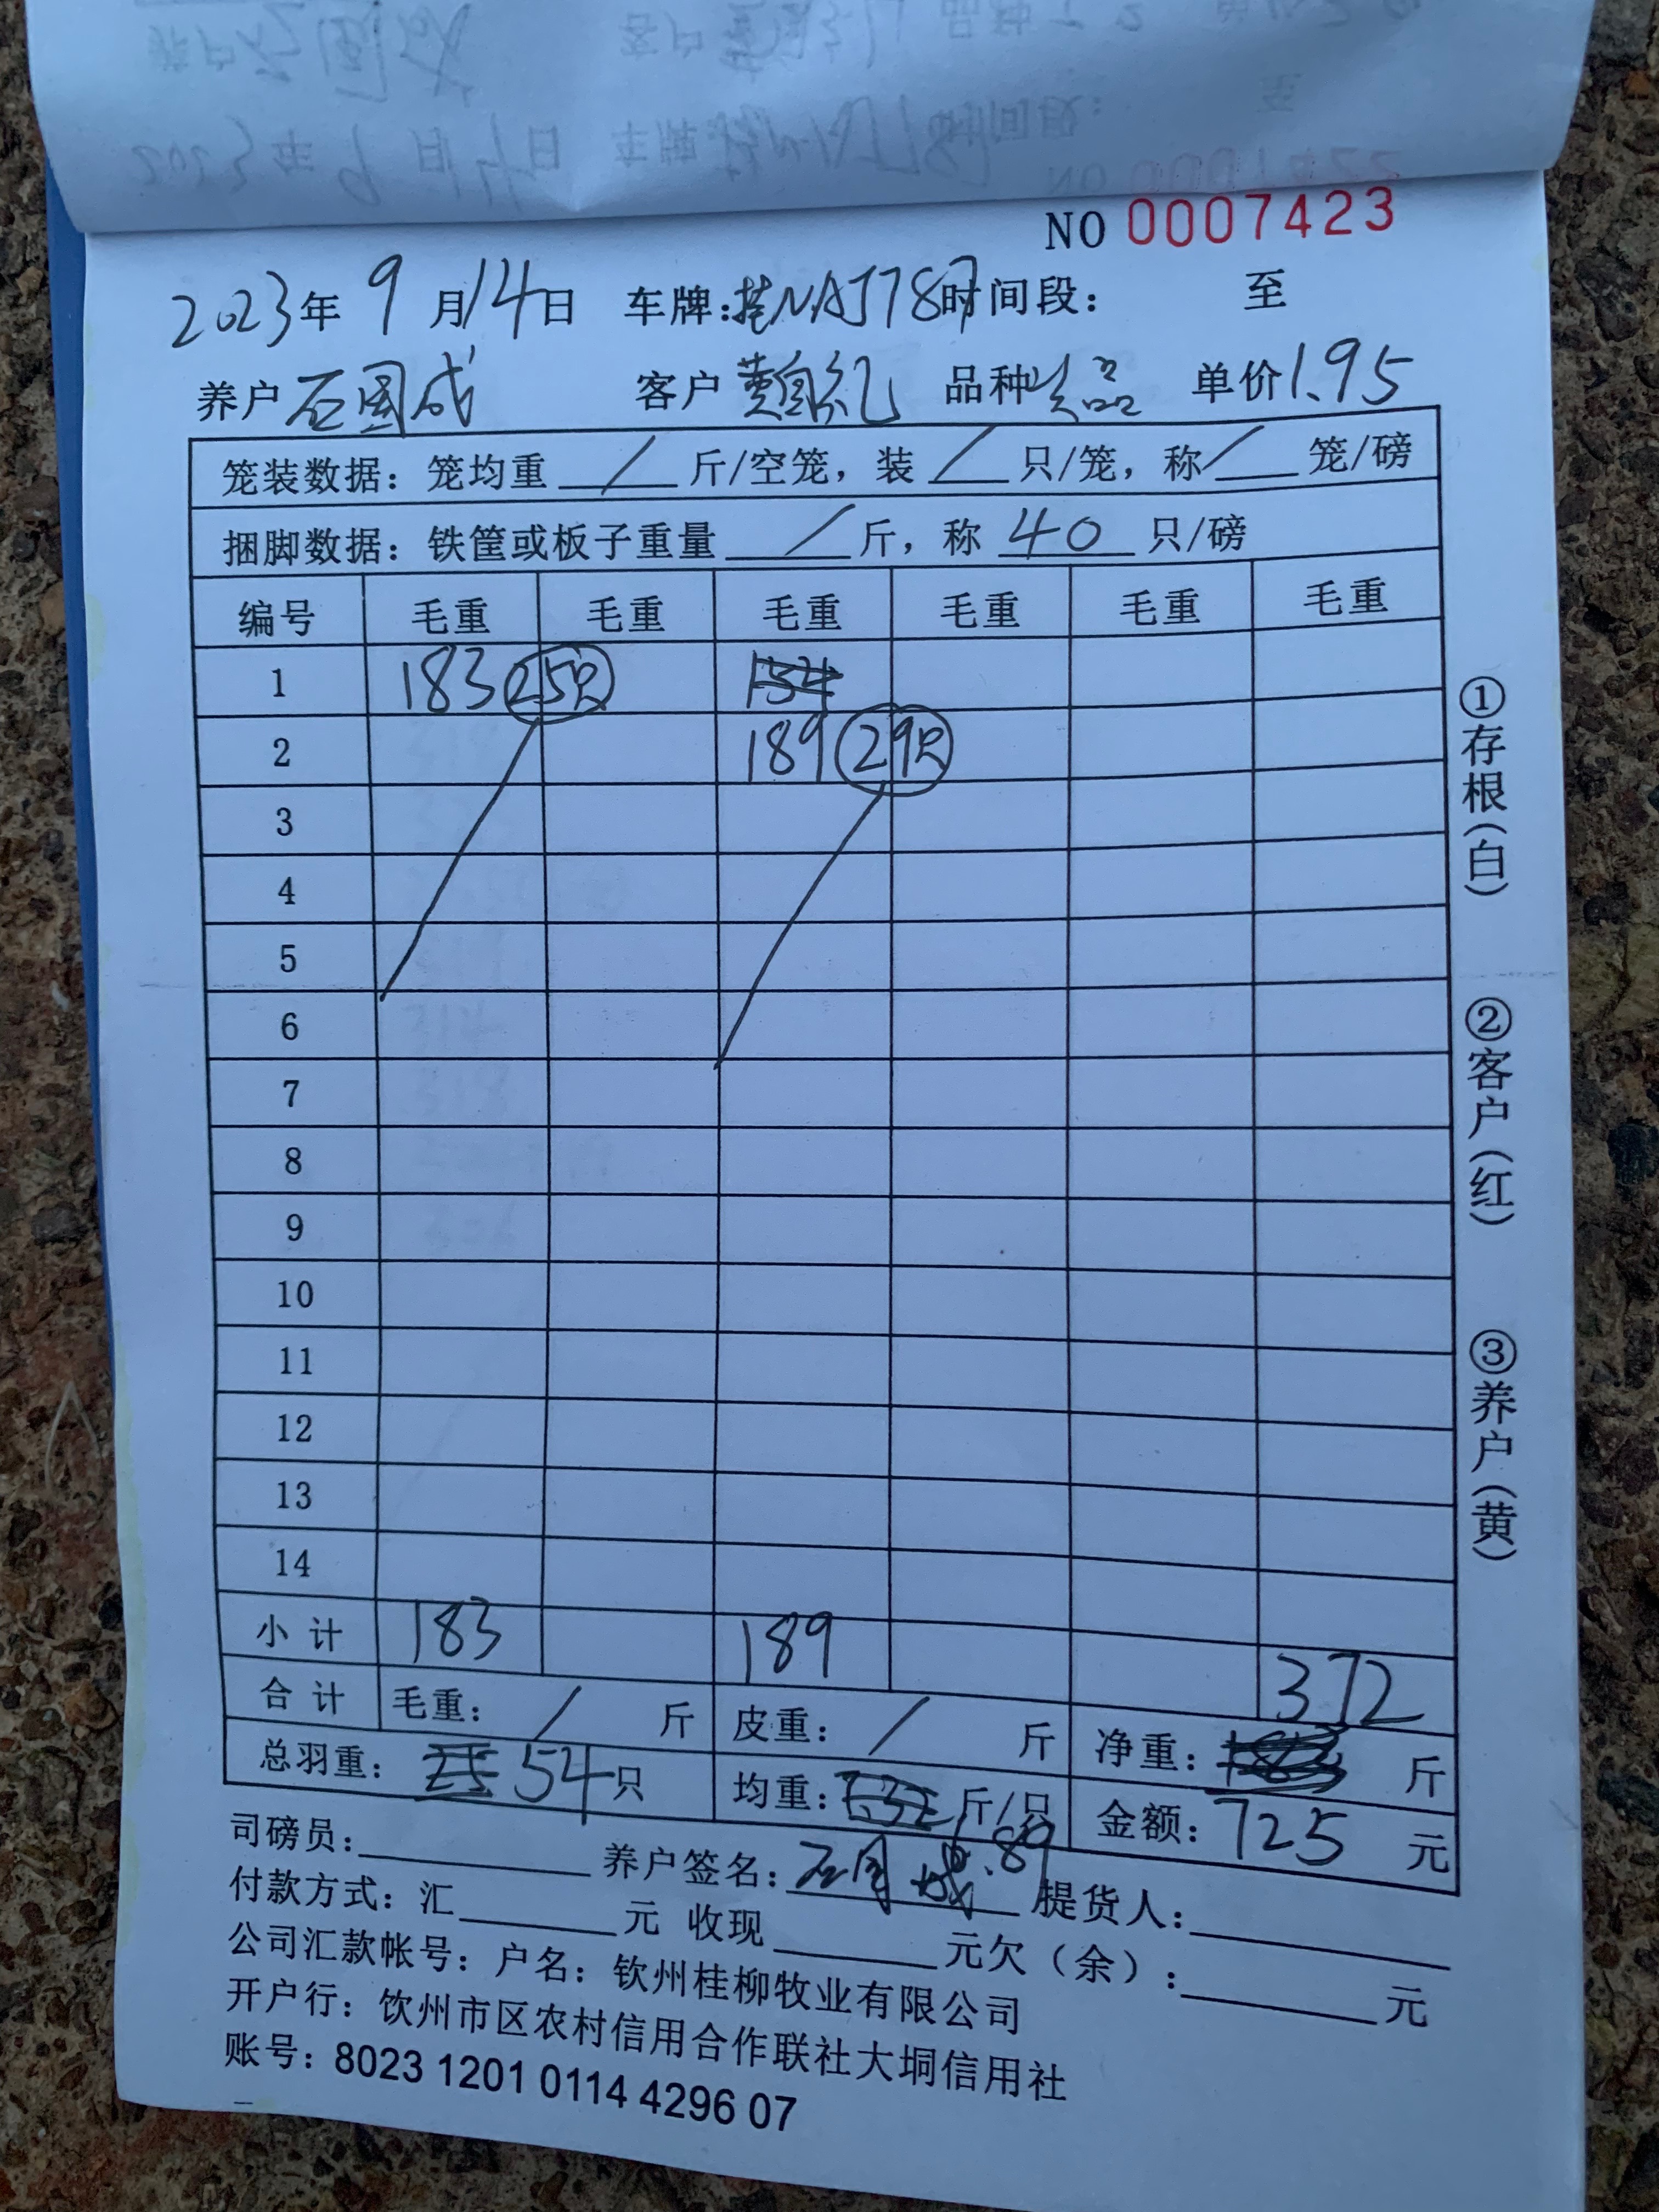 NO 0007423
2023年 9 月 14 日 车牌: NAJ787 时间段: 至
养户 石国成 客户 品种 单价 1.95
笼装数据: 笼均重 / 斤/空笼, 装 / 只/笼, 称 / 笼/磅
捆脚数据: 铁筐或板子重量 / 斤, 称 40 只/磅
编号 毛重 毛重 毛重 毛重 毛重 毛重
1 183 25只 154
2 189 29只
3
4
5
6
7
8
9
10
11
12
13
14
小计 183 189 372
合计 毛重: / 斤 皮重: / 斤 净重: 183 斤
总羽重: 25 54 只 均重: 斤/只 .89 金额: 725 元
司磅员: 养户签名: 石国成 提货人:
付款方式: 汇 元 收现 元欠(余): 元
公司汇款帐号: 户名: 钦州桂柳牧业有限公司
开户行: 饮州市区农村信用合作联社大垌信用社
账号: 8023 1201 0114 4296 07
①存根(白)
②客户(红)
③养户(黄)